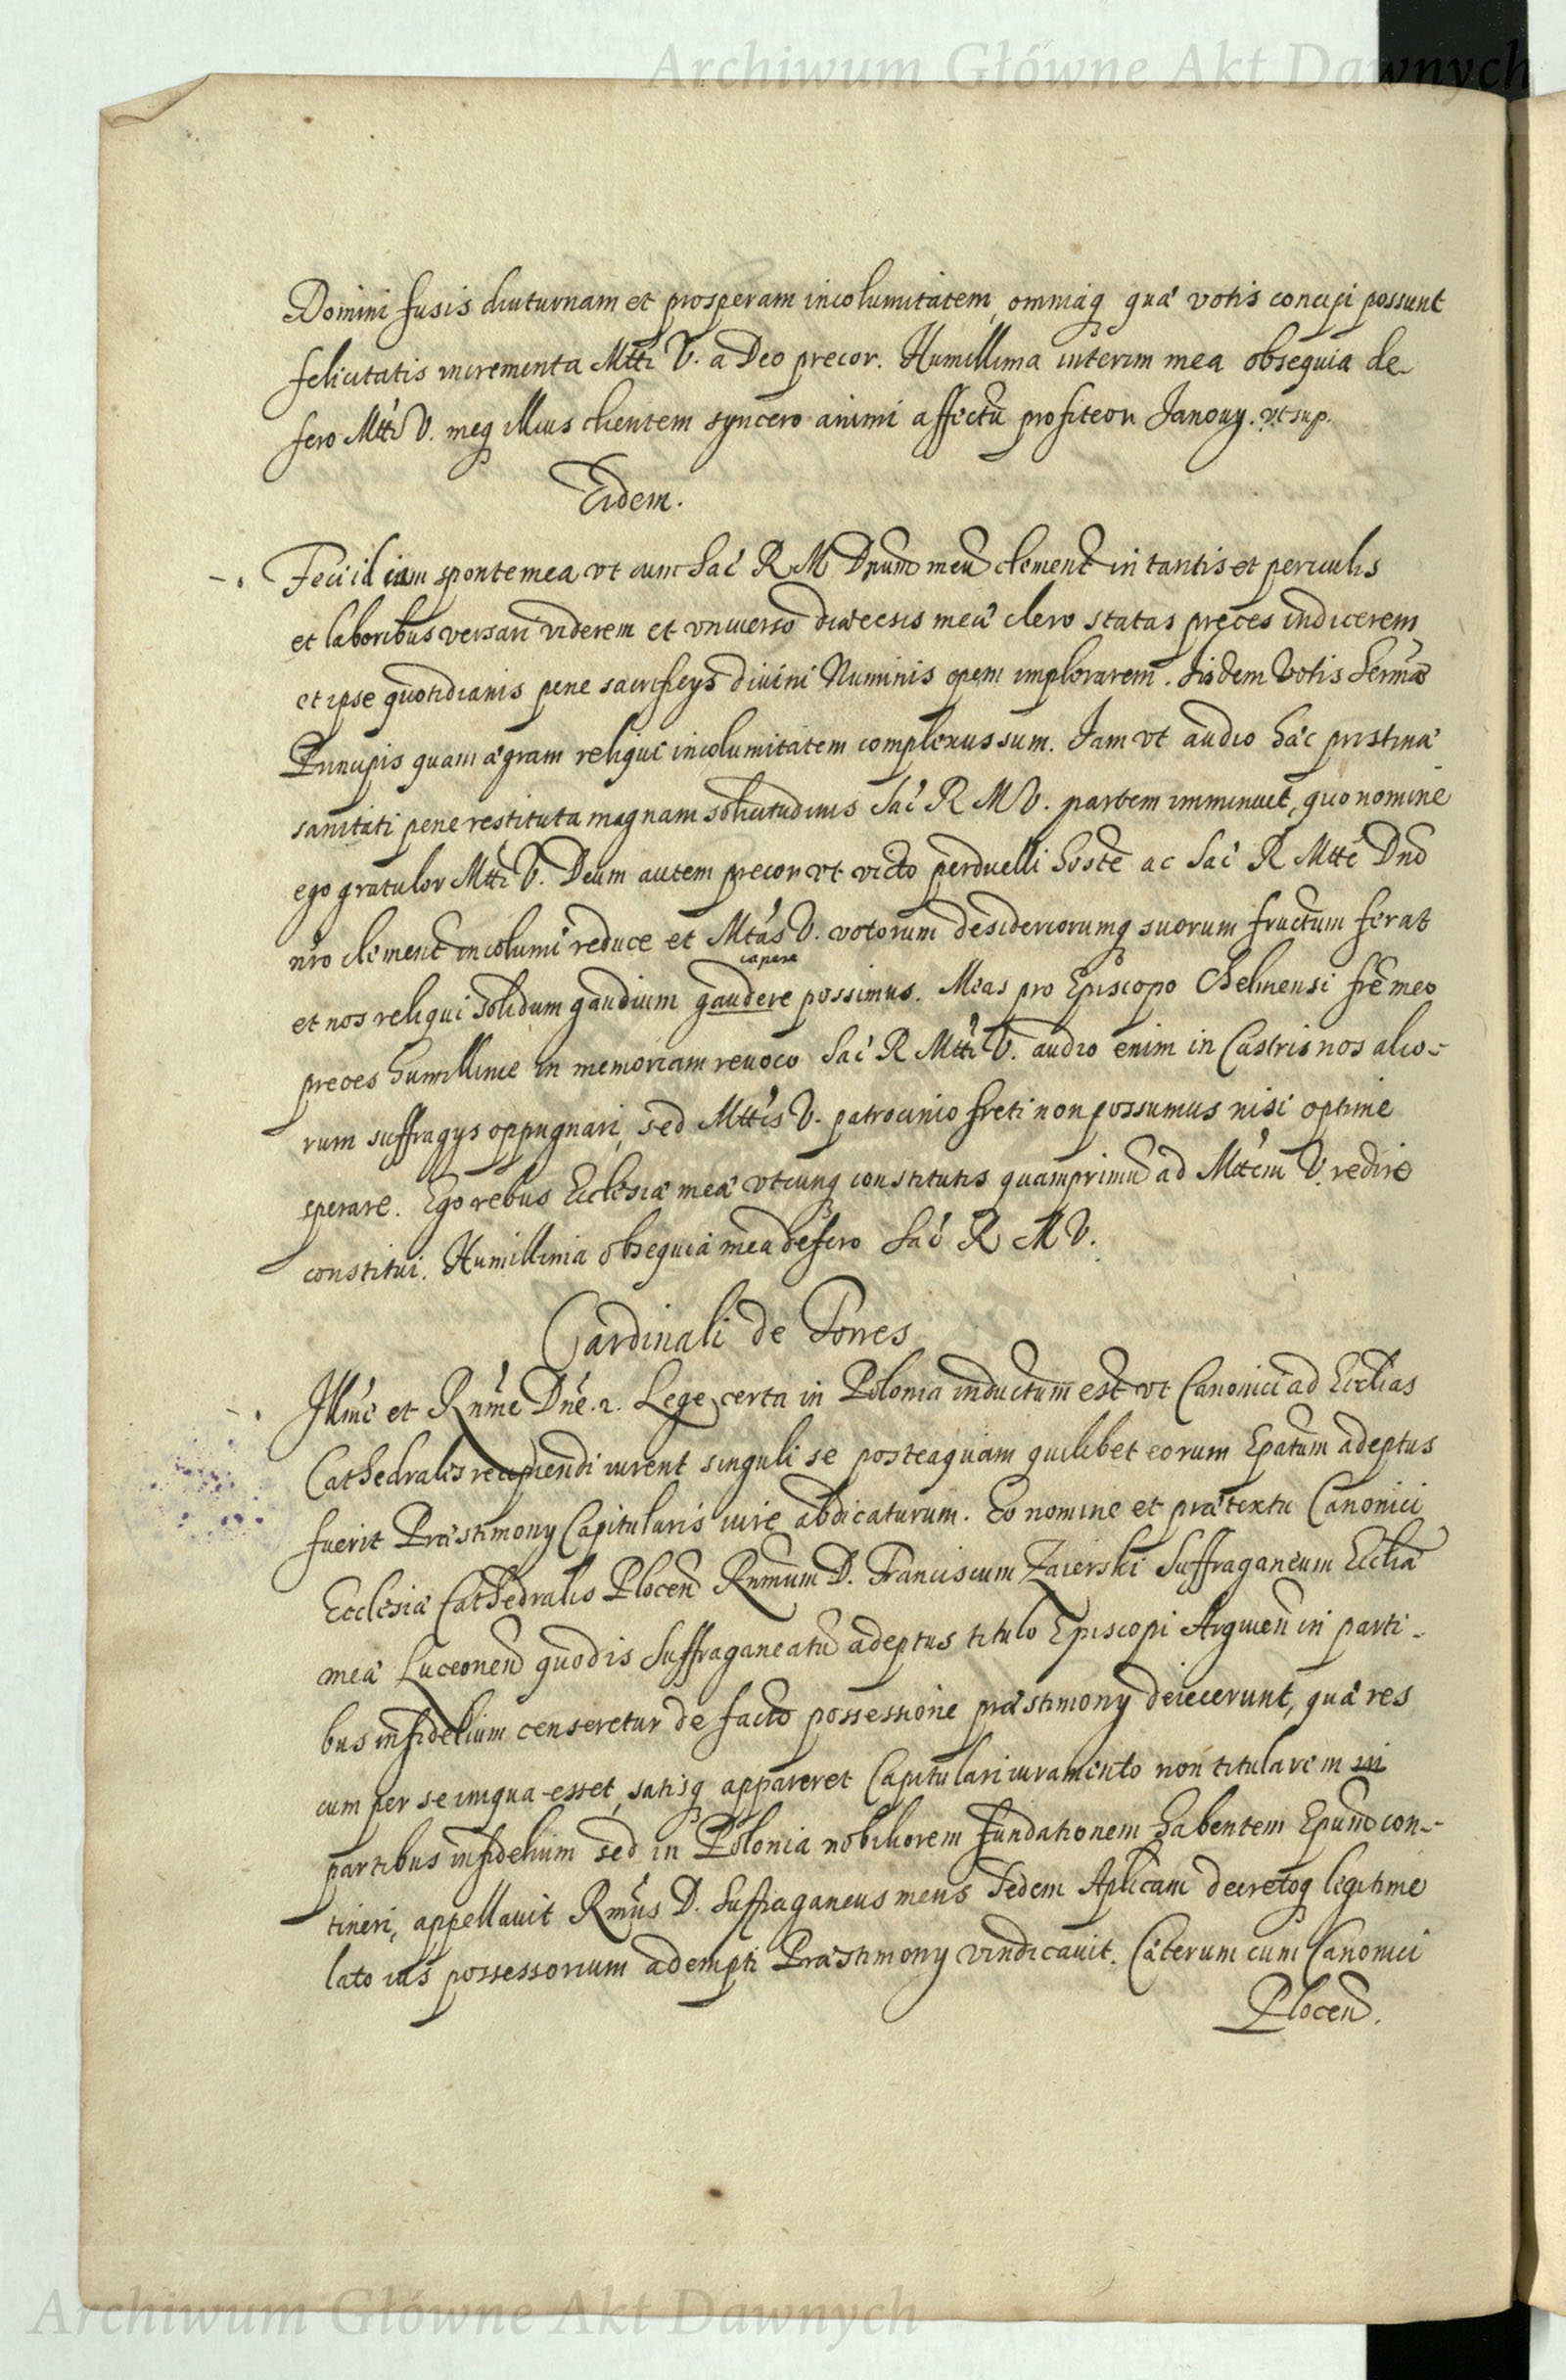 Archiwum Główne Akt Dawnych
Domini fusis diuturnam et prosperam incolumitatem, omniaq quæ votis concipi possunt
felicitatis incrementa Mtti V. a Deo precor. Humillima interim mea obsequia de-
fero Mtti V. meq illius clientem syncero animi affectu profiteor. Janouy. vt sup.
Eidem.
Feci id iam sponte mea, vt cum Sac R M Dnum meu clement in tantis et periculis
et laboribus versari viderem et vniuerso diæcesis meæ clero statas preces indicerem
et ipse quotidianis pene sacrificys diuini Numinis opem implorarem. Iisdem Votis Sermæ
Principis quam ægram reliqui incolumitatem complexus sum. Jam vt audio hæc pristinæ
sanitati pene restituta magnam solicitudinis Sac R M V. partem imminuet, quo nomine
ego gratulor Mtti V. Deum autem precor vt victo perduelli hoste ac Sac R Mtte Dno
nro clement incolumi reduce et Mtas V. votorum desideriorumq suorum fructum ferat
capere
et nos reliqui solidum gaudium gaudere possimus. Meas pro Episcopo Chelmensi fre meo
preces humillime in memoriam reuoco Sac R Mtti V. audio enim in Castris nos alio-
rum suffragys oppugnari, sed Mttis V. patrocinio freti non possumus nisi optime
sperare. Ego rebus Ecclesiæ meæ vtcunq constitutis quamprimu ad Mttem V. redire
constitui. Humillima obsequia mea defero Sac R M V.
Cardinali de Torres
Illme et Rnme Dne. Lege certa in Polonia inductum est vt Canonici ad Ecclias
Cathedralis recipiendi iurent singuli se posteaquam quilibet eorum Epatum adeptus
fuerit Præstimony Capitularis iure abdicaturum. Eo nomine et prætextu Canonici
Ecclesiæ Cathedralis Plocen Rnmum D. Franciscum Zaierski Suffraganeum Eccliæ
meæ Luceonen quod is Suffraganeatu adeptus titulo Episcopi Argiuen in parti-
bus infidelium censeretur de facto possessione præstimony deiecerunt, quæ res
cum per se iniqua esset, satisq appareret Capitulari iuramento non titularem in
partibus infidelium sed in Polonia nobiliorem fundationem habentem Epum con-
tineri, appellauit Rmus D. Suffraganeus meus Sedem Aplicam decretoq legitime
lato ius possessorium adempti Præstimony vindicauit. Cæterum cum Canonici
Plocen.
Archiwum Główne Akt Dawnych